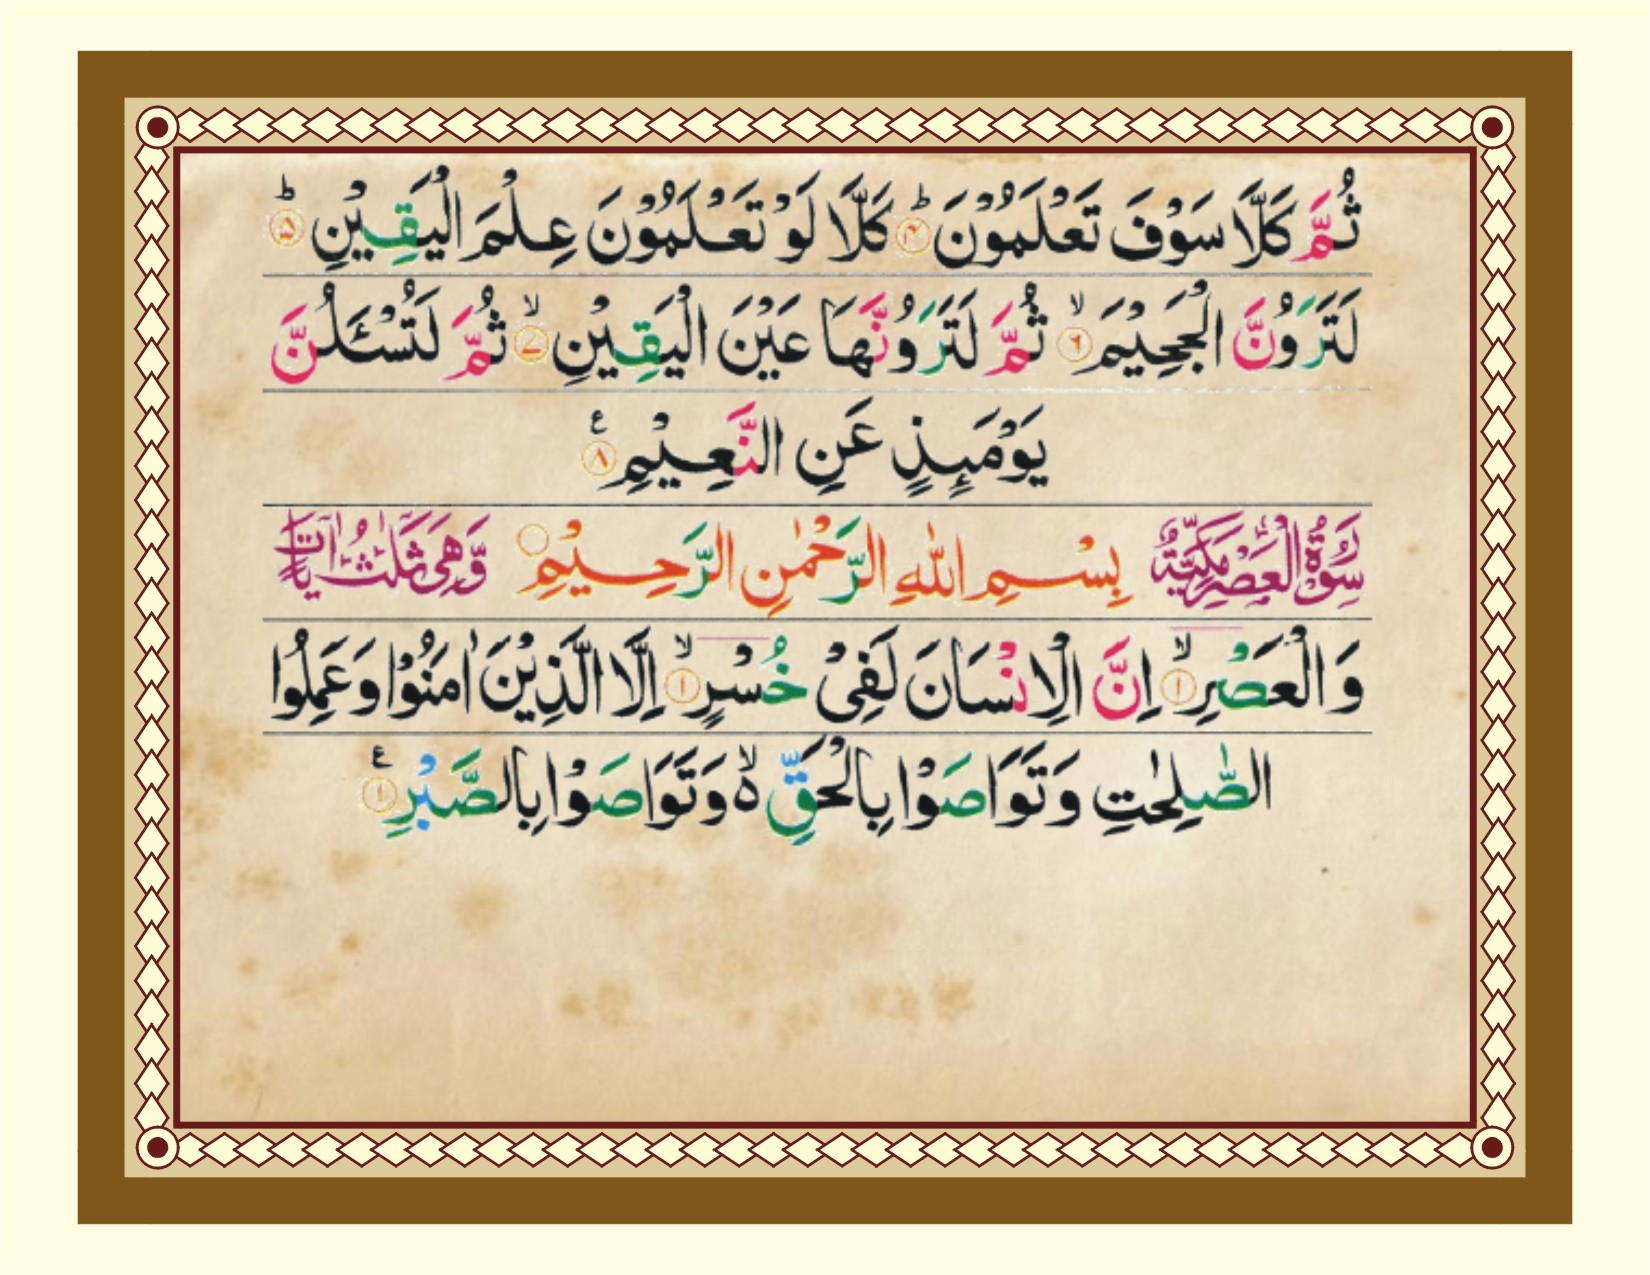 ثُمَّ كَلَّا سَوْفَ تَعْلَمُوْنَ ؕ﴿۴﴾ كَلَّا لَوْ تَعْلَمُوْنَ عِلْمَ الْيَقِيْنِ ؕ﴿۵﴾
لَتَرَوُنَّ الْجَحِيْمَ ۙ﴿۶﴾ ثُمَّ لَتَرَوُنَّهَا عَيْنَ الْيَقِيْنِ ۙ﴿۷﴾ ثُمَّ لَتُسْـَٔلُنَّ
يَوْمَىِٕذٍ عَنِ النَّعِيْمِ ﴿۸﴾ ع
سُوْرَةُ الْعَصْرِ مَكِّيَّةٌ بِسْمِ اللّٰهِ الرَّحْمٰنِ الرَّحِيْمِ وَّهِىَ ثَلٰثُ اٰيَاتٍ
وَالْعَصْرِ ۙ﴿۱﴾ اِنَّ الْاِنْسَانَ لَفِىْ خُسْرٍ ۙ﴿۱﴾ اِلَّا الَّذِيْنَ اٰمَنُوْا وَعَمِلُوا
الصّٰلِحٰتِ وَتَوَاصَوْا بِالْحَقِّ ۙ۬ وَتَوَاصَوْا بِالصَّبْرِ ﴿۱﴾ ع